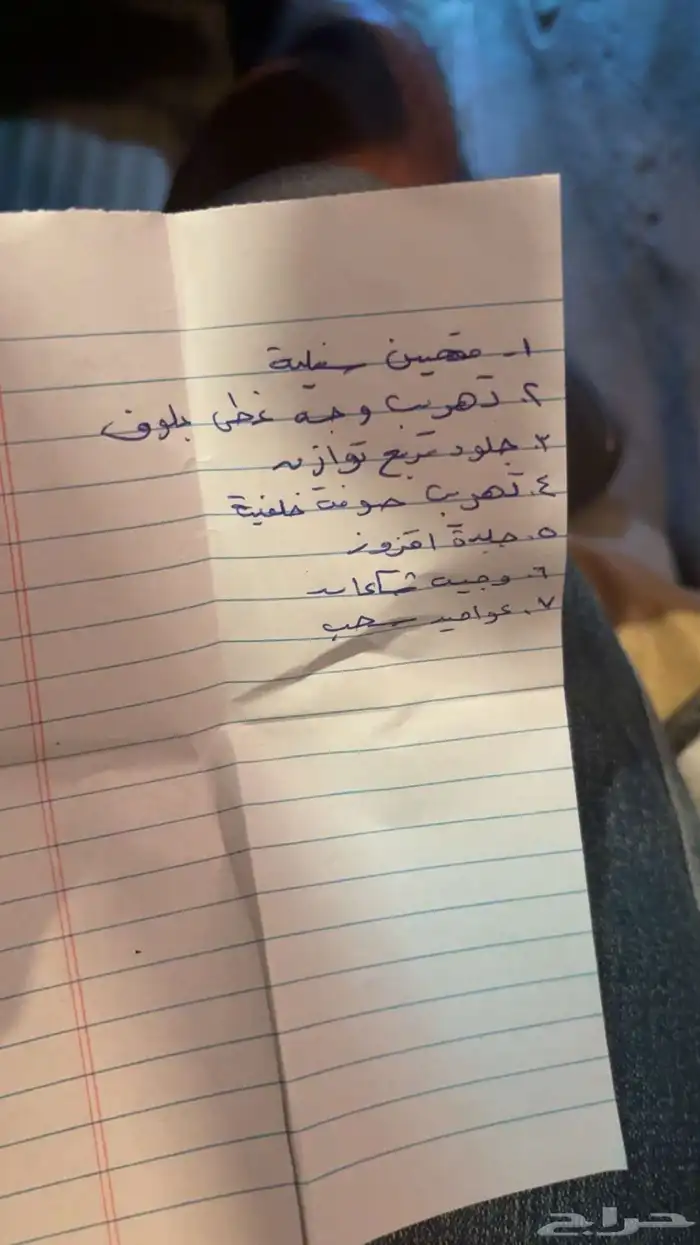 ١- مقصين سفلية
٢. تهريب وجه غطى بلوف
٣. جلود تربع توازن
٤. تهريب صوفة خلفية
٥. جلدة اقزوز
٦. وجيه
٧. عواميد سحب
حراج